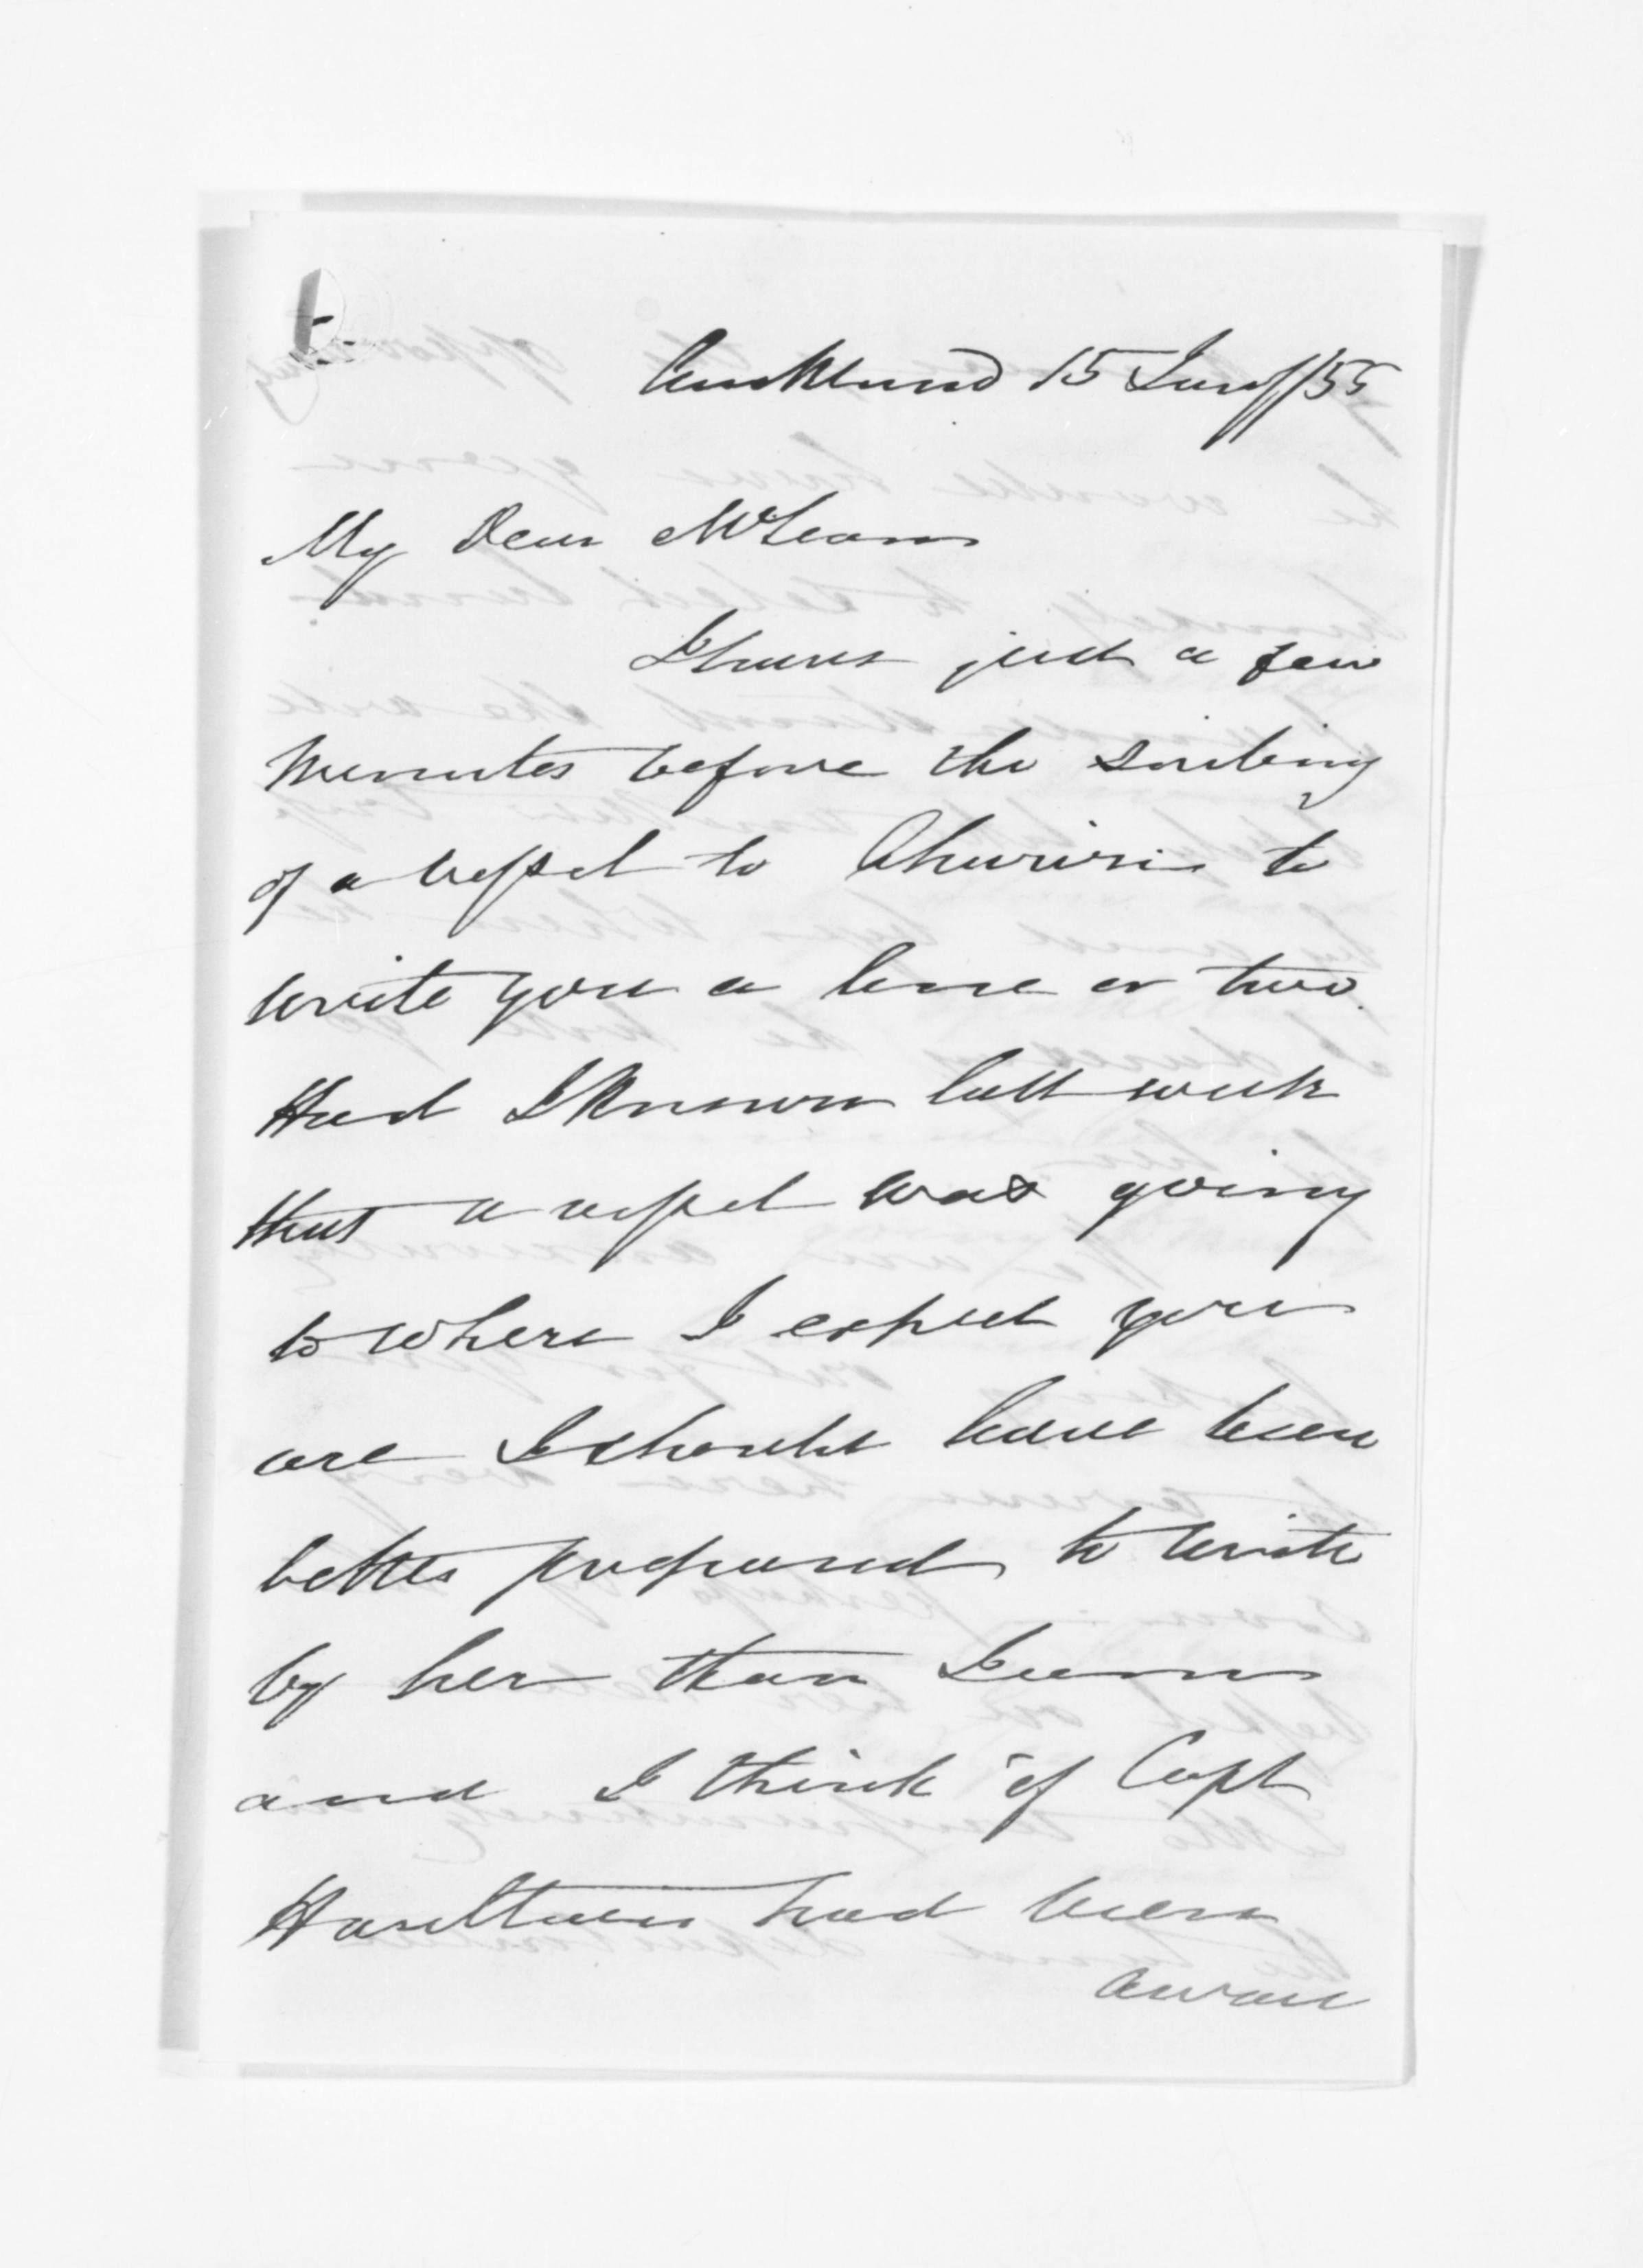 Auckland 15 Jany/55
My Dear McLean
I have just a few
minutes before the sailing
of a vessel to Ahuriri to
write you a line or two.
Had I known last week
that a vessel was going
to where I expect you
are I should have been
better prepared to write
by her than I am
and I think if Capt
had been
aware